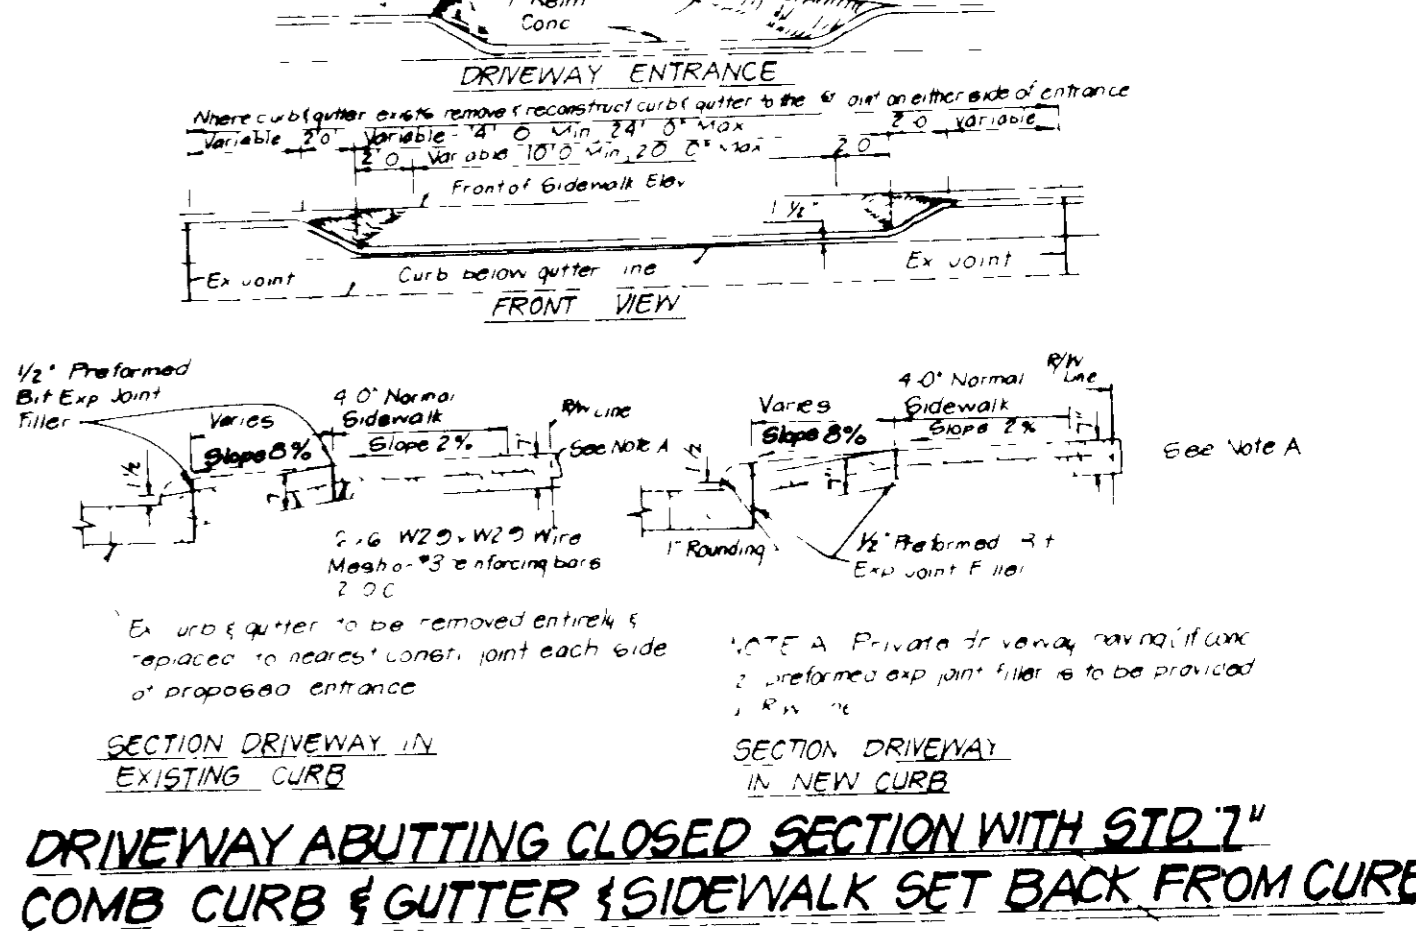 Conc
DRIVEWAY ENTRANCE
Where curb & gutter exists remove & reconstruct curb & gutter to the on either side of entrance
Variable 2'0" Variable 4' 0 Min 24' 0" Max 2 0 variable
2'0 Variable 10'0 Min, 20 0" Max 2 0
Front of Sidewalk Elev
1 1/2"
Ex Joint Curb below gutter line Ex Joint
FRONT VIEW
1/2" Preformed
Bit Exp Joint
Filler
Varies
Slope 8%
4 0" Normal
Sidewalk
Slope 2%
R/W Line
See Note A
1 1/2
7"
W2 9 x W2 9 Wire
Mesh or #3 reinforcing bars
Ex curb & gutter to be removed entirely &
replaced to nearest const. joint each side
of proposed entrance
SECTION DRIVEWAY IN
EXISTING CURB
R/W
Line
4-0" Normal
Sidewalk
Slope 2%
Varies
Slope 8%
See Note A
1/2
7"
1" Rounding
1/2" Preformed Bit
Exp Joint Filler
NOTE A Private driveway paving, if conc
preformed exp joint filler is to be provided
SECTION DRIVEWAY
IN NEW CURB
DRIVEWAY ABUTTING CLOSED SECTION WITH STD. 7"
COMB CURB & GUTTER & SIDEWALK SET BACK FROM CURB